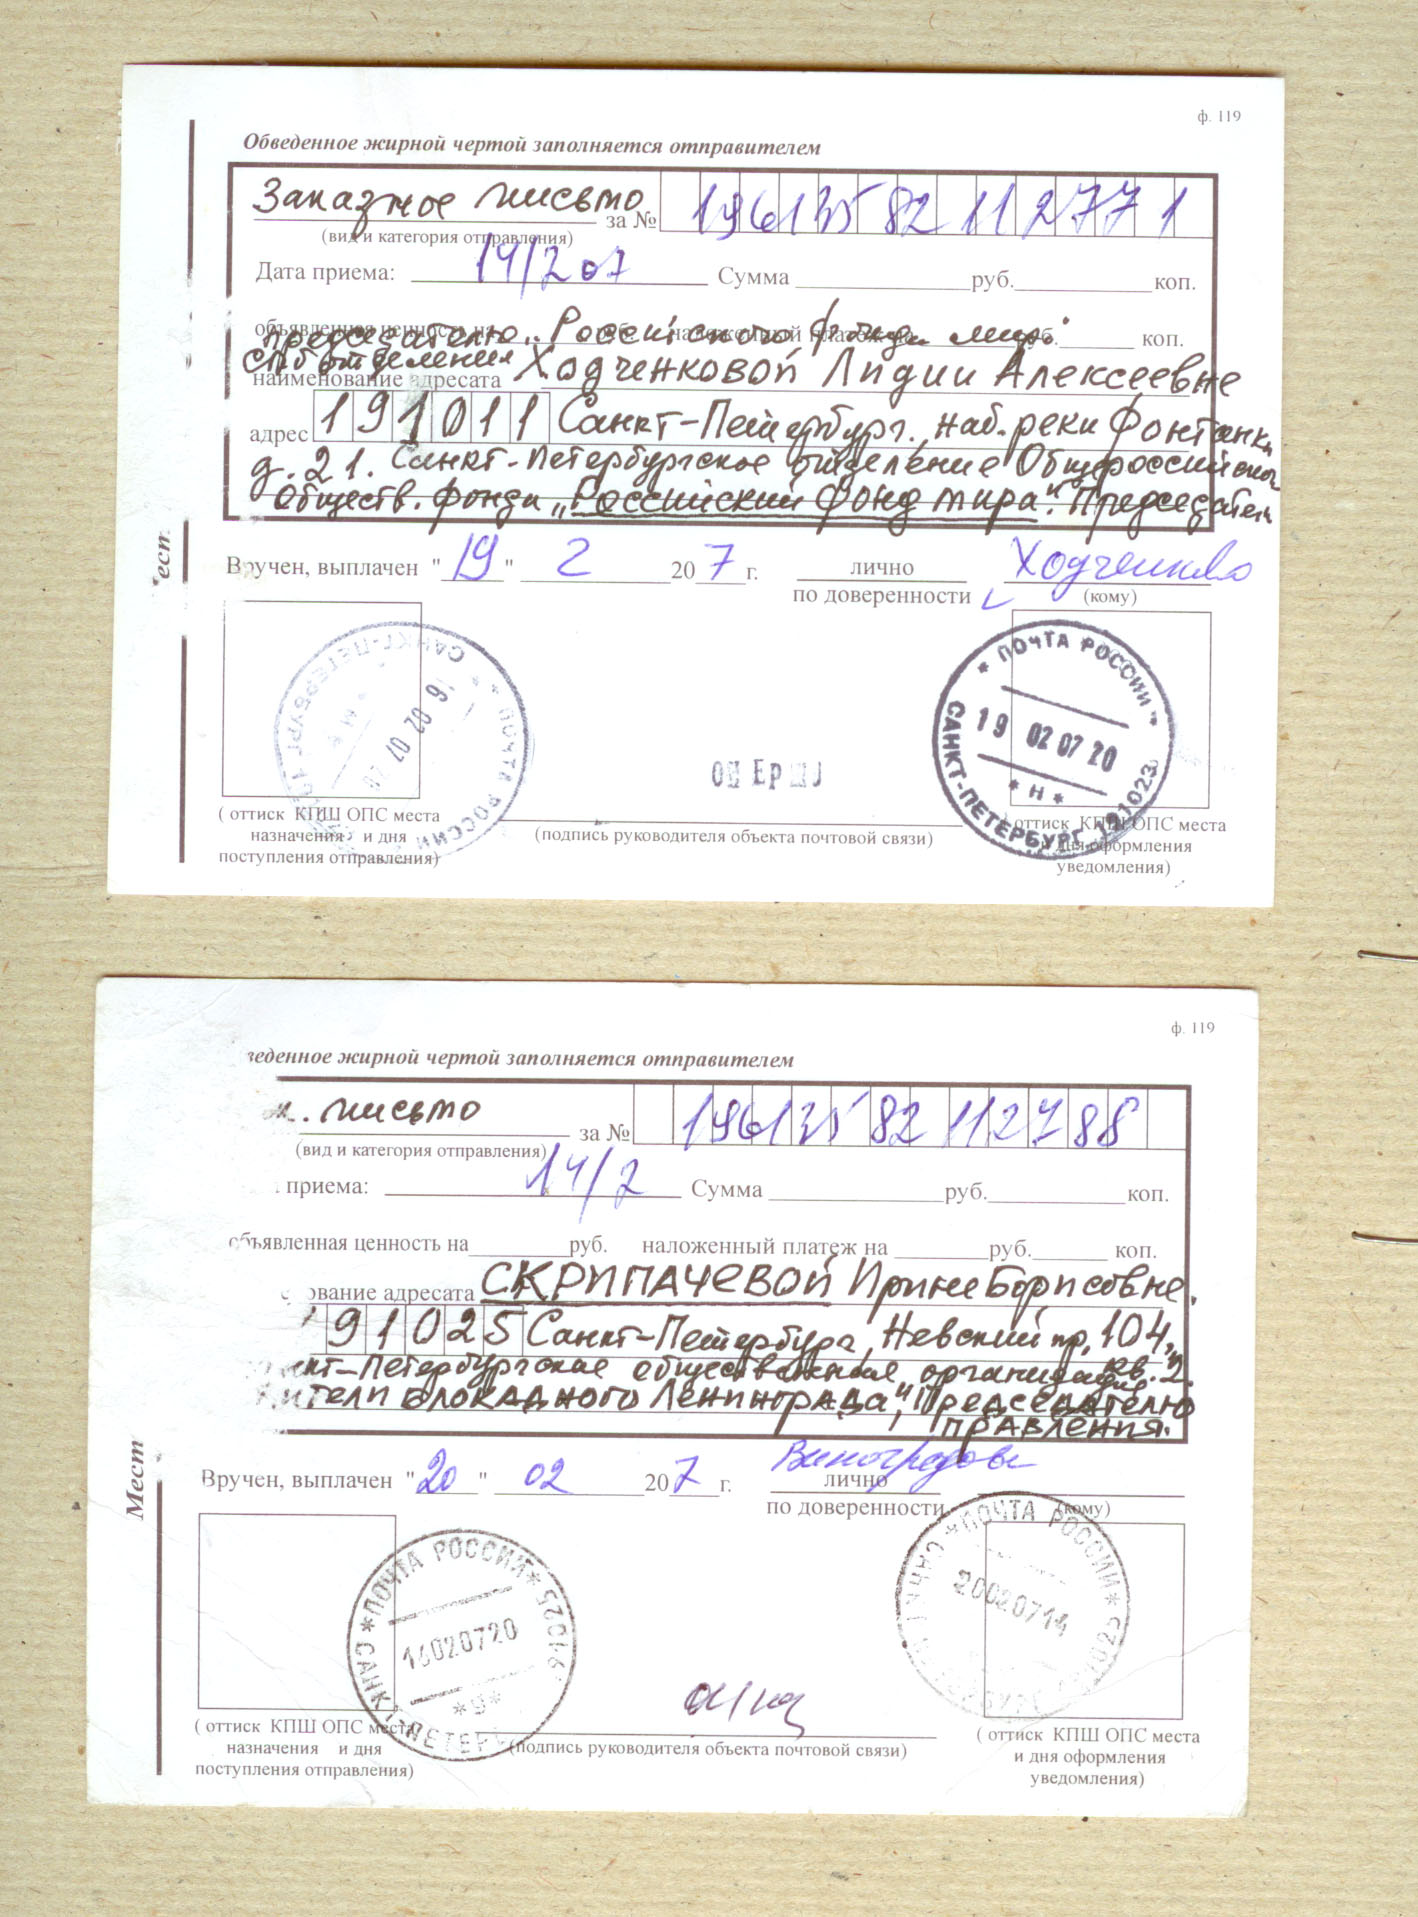 ф. 119
Обведенное жирной чертой заполняется отправителем
Заказное письмо за № 19613582112771
(вид и категория отправления)
Дата приема: 14/2 07 Сумма руб. коп.
объявленная ценность на руб. наложенный платеж на руб. коп.
председателю „Российского фонда мира"
СПб отделения
наименование адресата Ходченковой Лидии Алексеевне
адрес 191011 Санкт-Петербург. наб. реки Фонтанки
д. 21. Санкт-Петербургское отделение Общероссийского
Обществ. фонда „Российский фонд мира". Председатель
Вручен, выплачен "19" 2 2007 г. лично Ходченкова
по доверенности (кому)
САНКТ-ПЕТЕРБУРГ ПОЧТА РОССИИ
16 02 07 20
* ПОЧТА РОССИИ *
19 02 07 20
* Н *
САНКТ-ПЕТЕРБУРГ 191023
( оттиск КПШ ОПС места
назначения и дня
поступления отправления)
(подпись руководителя объекта почтовой связи)
( оттиск КПШ ОПС места
и дня оформления
уведомления)
ф. 119
веденное жирной чертой заполняется отправителем
письмо за № 19613582112788
(вид и категория отправления)
приема: 14/2 Сумма руб. коп.
объявленная ценность на руб. наложенный платеж на руб. коп.
ование адресата СКРИПАЧЕВОЙ Ирине Борисовне.
191025 Санкт-Петербург, Невский пр, 104,
кт-Петербургская общественная организация кв. 2.
ители блокадного Ленинграда", Председателю
правления.
Мест
Вручен, выплачен "20" 02 2007 г. лично Виноградова
по доверенности (кому)
*ПОЧТА РОССИИ*
16020720
*9*
САНКТ-ПЕТЕР 191025
*ПОЧТА РОССИИ*
20020714
( оттиск КПШ ОПС места
назначения и дня
поступления отправления)
(подпись руководителя объекта почтовой связи)
( оттиск КПШ ОПС места
и дня оформления
уведомления)